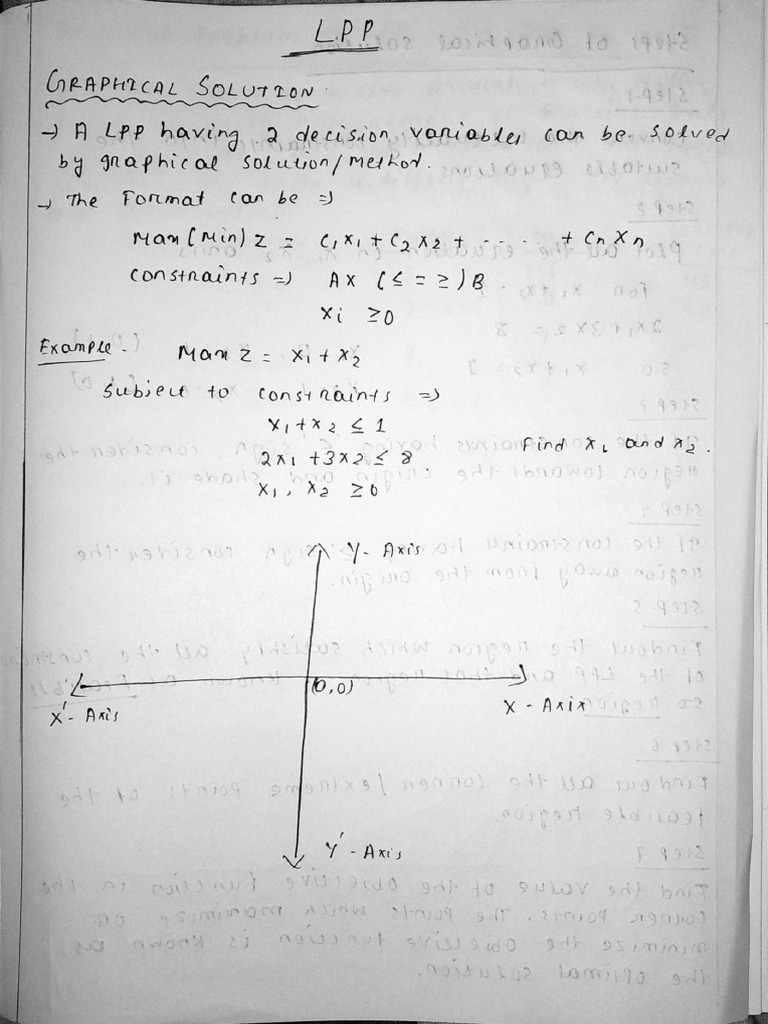 LPP
GRAPHICAL SOLUTION
→ A LPP having 2 decision variables can be solved
by graphical solution/method.
→ The Format can be ⇒
Max (Min) Z = C₁x₁ + C₂x₂ + ...... + Cn Xn
constraints ⇒ AX (≤ = ≥) B
Xi ≥ 0
Example. Max Z = x₁ + x₂
Subject to constraints ⇒
x₁ + x₂ ≤ 1
2x₁ + 3x₂ ≤ 8 Find x₁ and x₂.
x₁, x₂ ≥ 0
Y - Axis
(0,0)
X' - Axis X - Axix
Y' - Axis